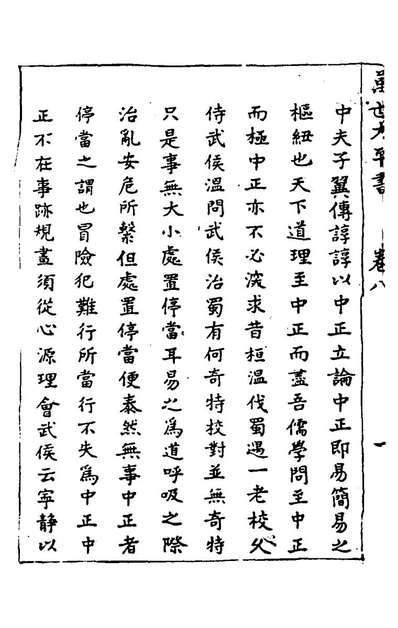 萬世太平書 卷八 一
中夫子翼傳諄諄以中正立論中正即易簡易之
樞紐也天下道理至中正而盡吾儒學問至中正
而極中正亦不必深求昔桓溫伐蜀遇一老校久
侍武侯溫問武侯治蜀有何奇特校對並無奇特
只是事無大小處置停當耳易之為道呼吸之際
治亂安危所繫但處置停當便泰然無事中正者
停當之謂也冒險犯難行所當行不失為中正中
正不在事跡規畫須從心源理會武侯云寧靜以